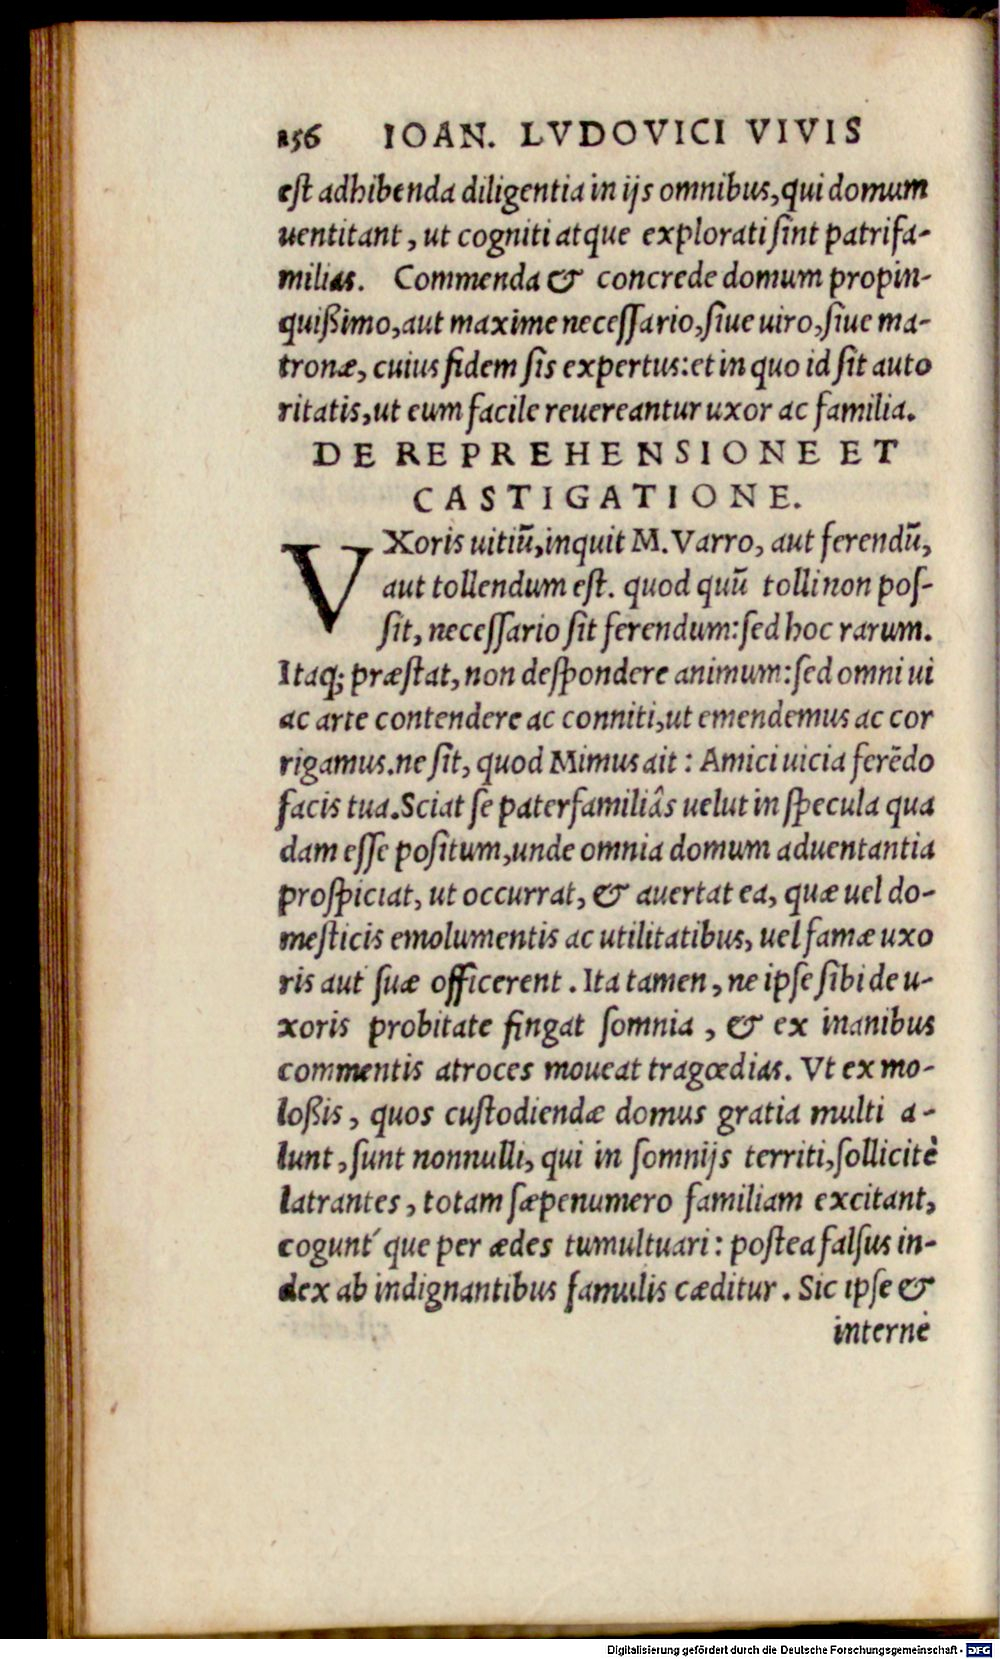 256 IOAN. LVDOVICI VIVIS
eſt adhibenda diligentia in ijs omnibus, qui domum
uentitant, ut cogniti atque explorati ſint patrifa-
milias. Commenda & concrede domum propin-
quißimo, aut maxime neceſſario, ſiue uiro, ſiue ma-
tronæ, cuius fidem ſis expertus: et in quo id ſit auto
ritatis, ut eum facile reuereantur uxor ac familia.
DE REPREHENSIONE ET
CASTIGATIONE.
VXoris uitiū, inquit M. Varro, aut ferendū,
aut tollendum eſt. quod quū tolli non poſ-
ſit, neceſſario ſit ferendum: ſed hoc rarum.
Itaq; præſtat, non deſpondere animum: ſed omni ui
ac arte contendere ac conniti, ut emendemus ac cor
rigamus. ne ſit, quod Mimus ait: Amici uicia ferēdo
facis tua. Sciat ſe paterfamiliâs uelut in ſpecula qua
dam eſſe poſitum, unde omnia domum aduentantia
proſpiciat, ut occurrat, & auertat ea, quæ uel do-
meſticis emolumentis ac utilitatibus, uel famæ uxo
ris aut ſuæ officerent. Ita tamen, ne ipſe ſibi de u-
xoris probitate fingat ſomnia, & ex inanibus
commentis atroces moueat tragœdias. Vt ex mo-
loßis, quos cuſtodiendæ domus gratia multi a-
lunt, ſunt nonnulli, qui in ſomnijs territi, ſollicitè
latrantes, totam ſæpenumero familiam excitant,
cogunt́ que per ædes tumultuari: poſtea falſus in-
dex ab indignantibus famulis cæditur. Sic ipſe &
interne
Digitalisierung gefördert durch die Deutsche Forschungsgemeinschaft - DFG